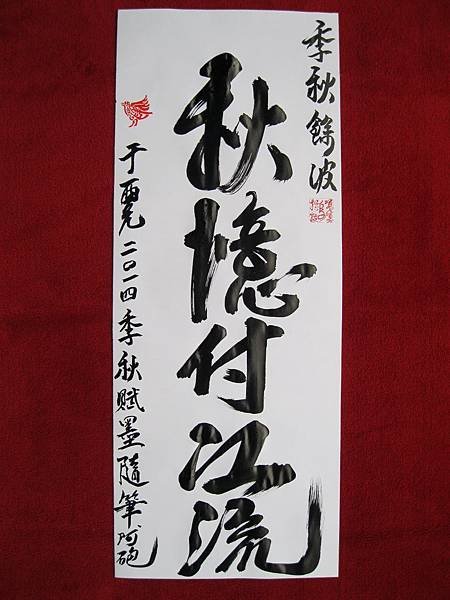 季秋餘波
秋憶付江流
二〇一四季秋賦墨隨筆阿砲